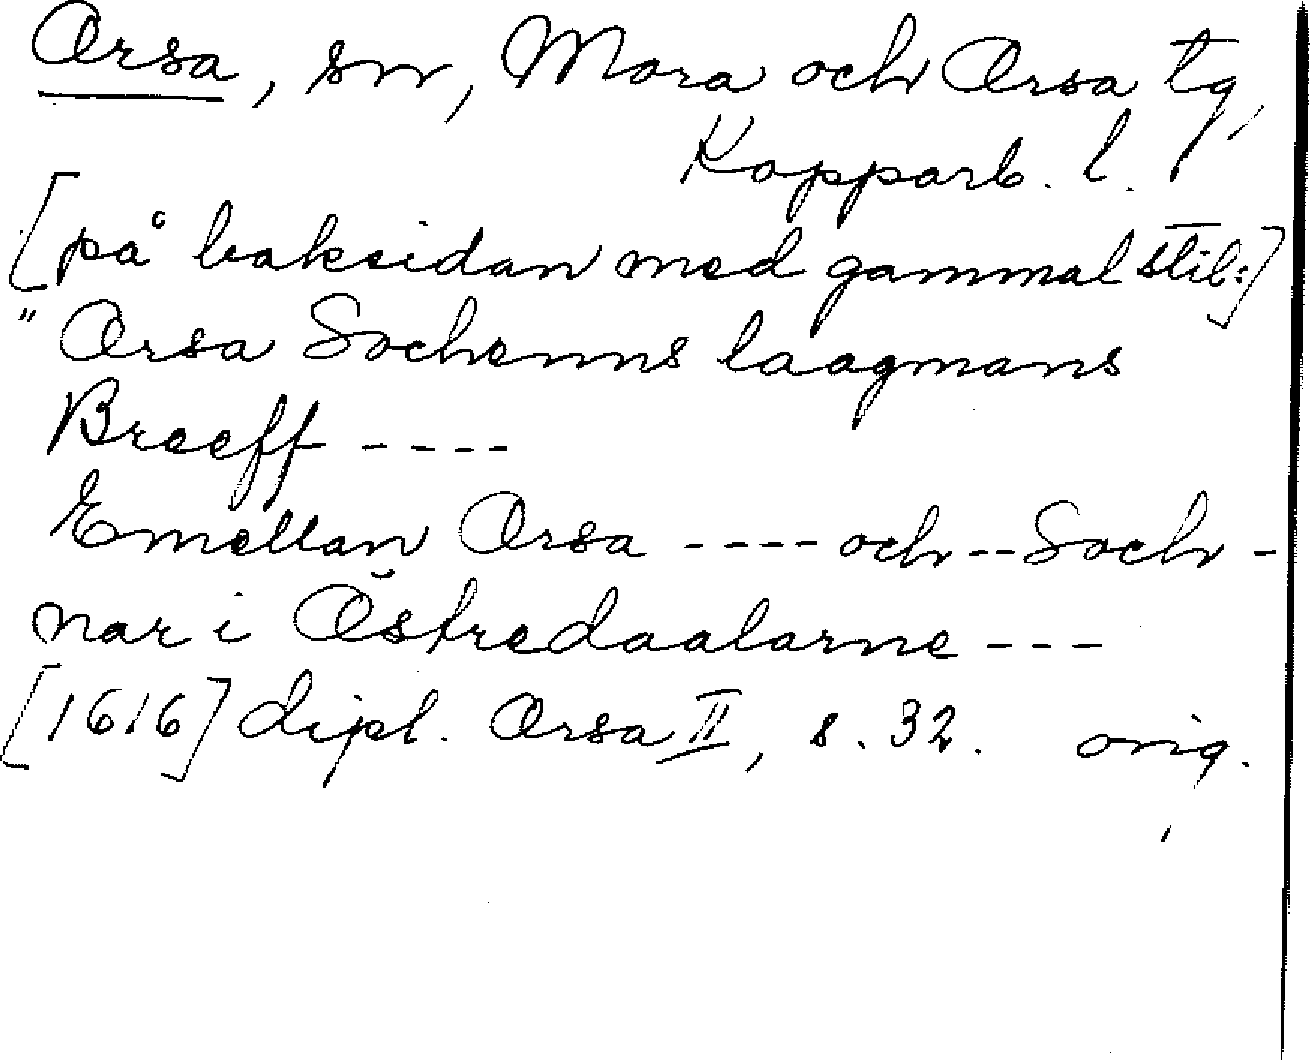 Orsa, sn, Mora och Orsa tg,
Kopparb. l.
[på baksidan med gammal stil:]
"Orsa Sochenns laagmans
Breeff ----
Emellan Orsa ---- och -- Soch-
nar i Östredaalarne ---
[1616] dipl. Orsa II, s. 32. orig.